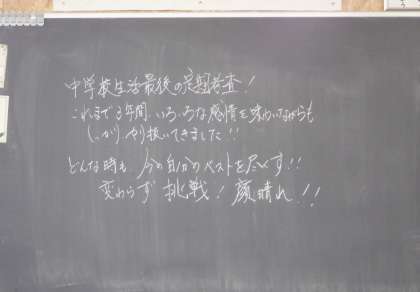 中学校生活最後の定期考査!
これまで3年間、いろいろな感情を味わいながらも
しっかりやり抜いてきました!!
どんな時も 今の自分のベストを尽くす!!
変わらず 挑戦! 顔晴れ!!